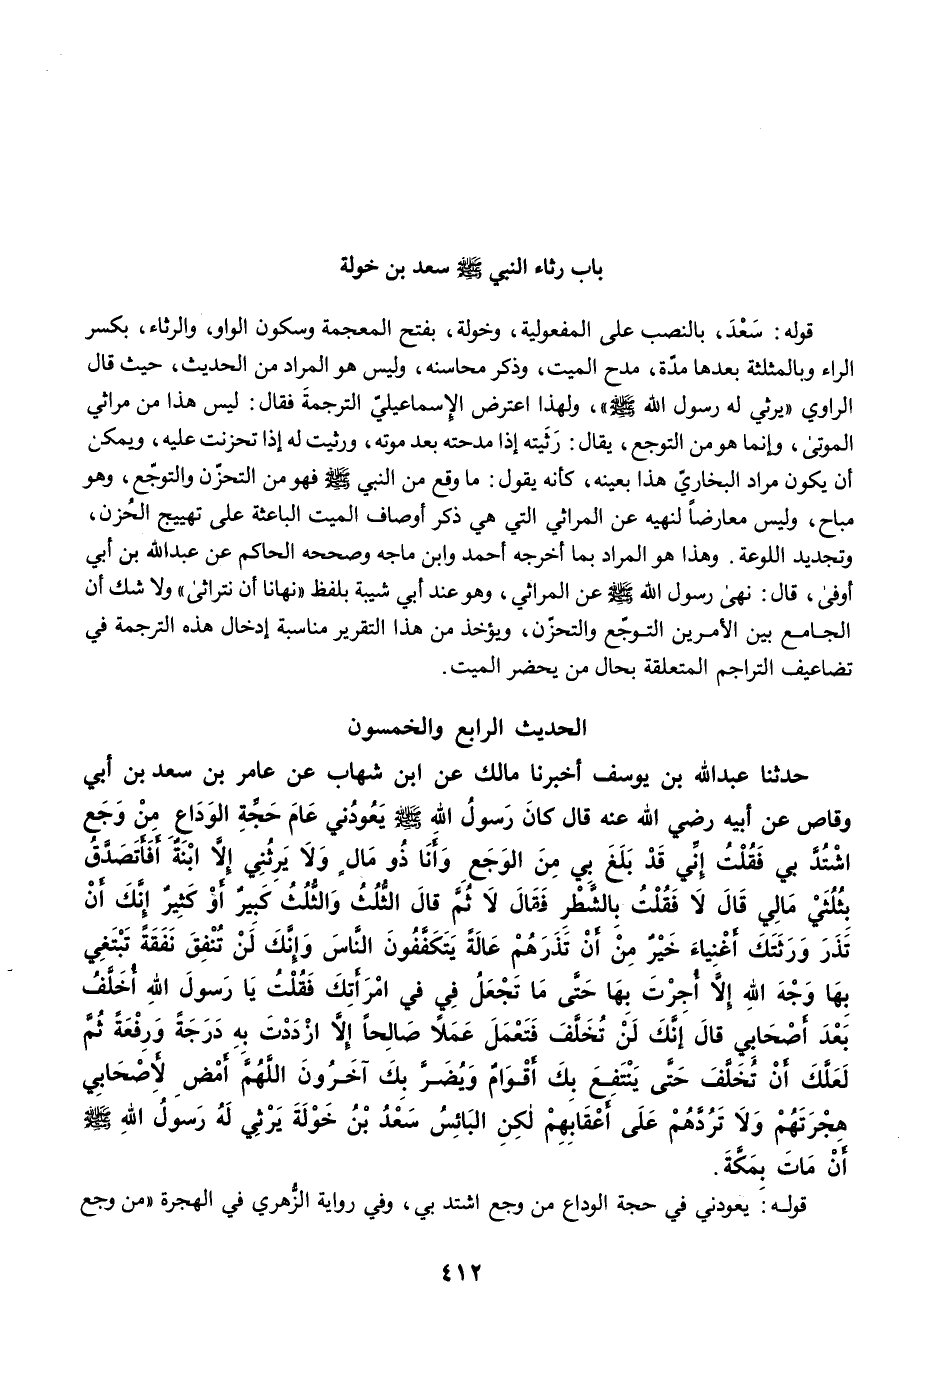 باب رثاء النبي ﷺ سعد بن خولة
قوله: سَعْدَ، بالنصب على المفعولية، وخولة، بفتح المعجمة وسكون الواو، والرثاء، بكسر
الراء وبالمثلثة بعدها مدّة، مدح الميت، وذكر محاسنه، وليس هو المراد من الحديث، حيث قال
الراوي «يرثي له رسول الله ﷺ»، ولهذا اعترض الإسماعيليّ الترجمةَ فقال: ليس هذا من مراثي
الموتىٰ، وإنما هو من التوجع، يقال: رَثَيته إذا مدحته بعد موته، ورثيت له إذا تحزنت عليه، ويمكن
أن يكون مراد البخاريّ هذا بعينه، كأنه يقول: ما وقع من النبي ﷺ فهو من التحزّن والتوجّع، وهو
مباح، وليس معارضاً لنهيه عن المراثي التي هي ذكر أوصاف الميت الباعثة على تهييج الحُزن،
وتجديد اللوعة. وهذا هو المراد بما أخرجه أحمد وابن ماجه وصححه الحاكم عن عبدالله بن أبي
أوفىٰ، قال: نهىٰ رسول الله ﷺ عن المراثي، وهو عند أبي شيبة بلفظ «نهانا أن نتراثىٰ» ولا شك أن
الجامع بين الأمرين التوجّع والتحزّن، ويؤخذ من هذا التقرير مناسبة إدخال هذه الترجمة في
تضاعيف التراجم المتعلقة بحال من يحضر الميت.
الحديث الرابع والخمسون
حدثنا عبدالله بن يوسف أخبرنا مالك عن ابن شهاب عن عامر بن سعد بن أبي
وقاص عن أبيه رضي الله عنه قال كانَ رَسولُ اللهِ ﷺ يَعُودُني عَامَ حَجَّةِ الوَدَاعِ مِنْ وَجَعٍ
اشْتَدَّ بي فَقُلْتُ إنِّي قَدْ بَلَغَ بي مِنَ الوَجَعِ وَأَنَا ذُو مَالٍ وَلَا يَرِثُنِي إلَّا ابْنَةٌ أَفَأَتَصَدَّقُ
بِثُلُثَيْ مَالِي قَالَ لَا فَقُلْتُ بِالشَّطْرِ فَقَالَ لَا ثُمَّ قالَ الثُّلُثُ وَالثُّلُثُ كَبِيرٌ أَوْ كَثِيرٌ إنَّكَ أَنْ
تَذَرَ وَرَثَتَكَ أَغْنِياءَ خَيْرٌ مِنْ أَنْ تَذَرَهُمْ عَالَةً يَتَكَفَّفُونَ النَّاسَ وَإِنَّكَ لَنْ تُنْفِقَ نَفَقَةً تَبْتَغِي
بِهَا وَجْهَ اللهِ إلَّا أُجِرْتَ بِهَا حَتَّى مَا تَجْعَلُ فِي في امْرَأَتِكَ فَقُلْتُ يَا رَسولَ اللهِ أُخَلَّفُ
بَعْدَ أَصْحَابي قالَ إنَّكَ لَنْ تُخَلَّفَ فَتَعْمَلَ عَمَلًا صَالِحاً إلَّا ازْدَدْتَ بِهِ دَرَجَةً وَرِفْعَةً ثُمَّ
لَعَلَّكَ أَنْ تُخَلَّفَ حَتَّى يَنْتَفِعَ بِكَ أَقْوَامٌ وَيُضَرَّ بِكَ آخَرُونَ اللَّهُمَّ أَمْضِ لِأَصْحَابِي
هِجْرَتَهُمْ وَلَا تَرُدَّهُمْ عَلَى أَعْقَابِهِمْ لٰكِنِ البَائِسُ سَعْدُ بْنُ خَوْلَةَ يَرْثِي لَهُ رَسولُ اللهِ ﷺ
أَنْ مَاتَ بِمَكَّةَ.
قوله: يعودني في حجة الوداع من وجع اشتد بي، وفي رواية الزُّهري في الهجرة «من وجع
٤١٢